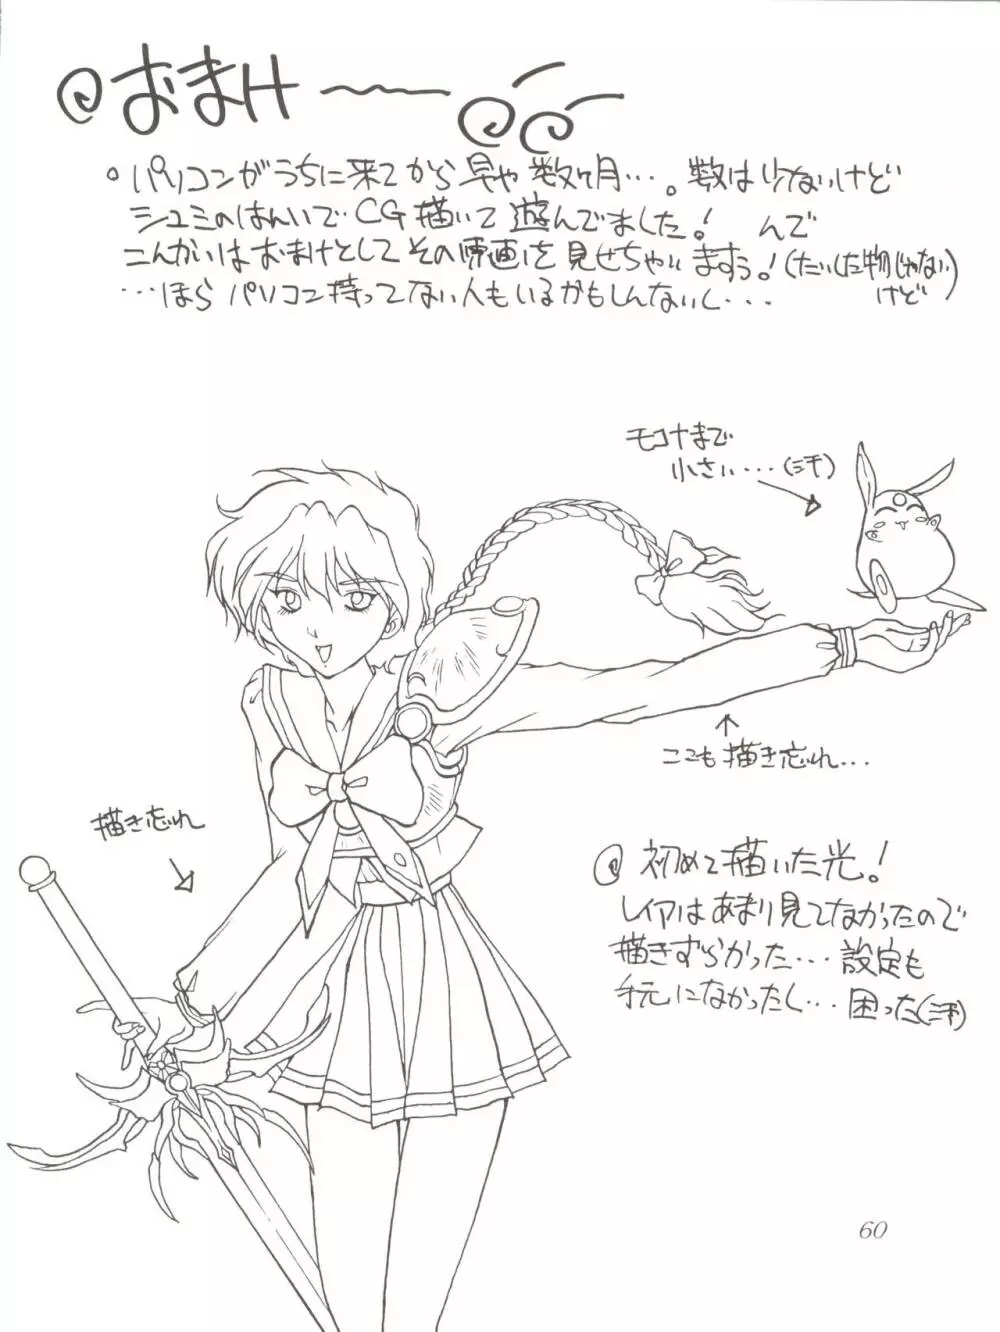 おまけ
。パソコンがうちに来てから早や数ヶ月…。数は少ないけど
シュミのはんいで CG描いて遊んでました! んで
こんかいはおまけとしてその原画を見せちゃいますぅ!(たいした物じゃない
けど)
…ほらパソコン持ってない人もいるかもしんないし…
モコナまで
小さい‥‥(汗)
ここも描き忘れ…
描き忘れ
初めて描いた光!
レイアはあまり見てなかったので
描きずらかった…設定も
手元になかったし…困った(汗)
60